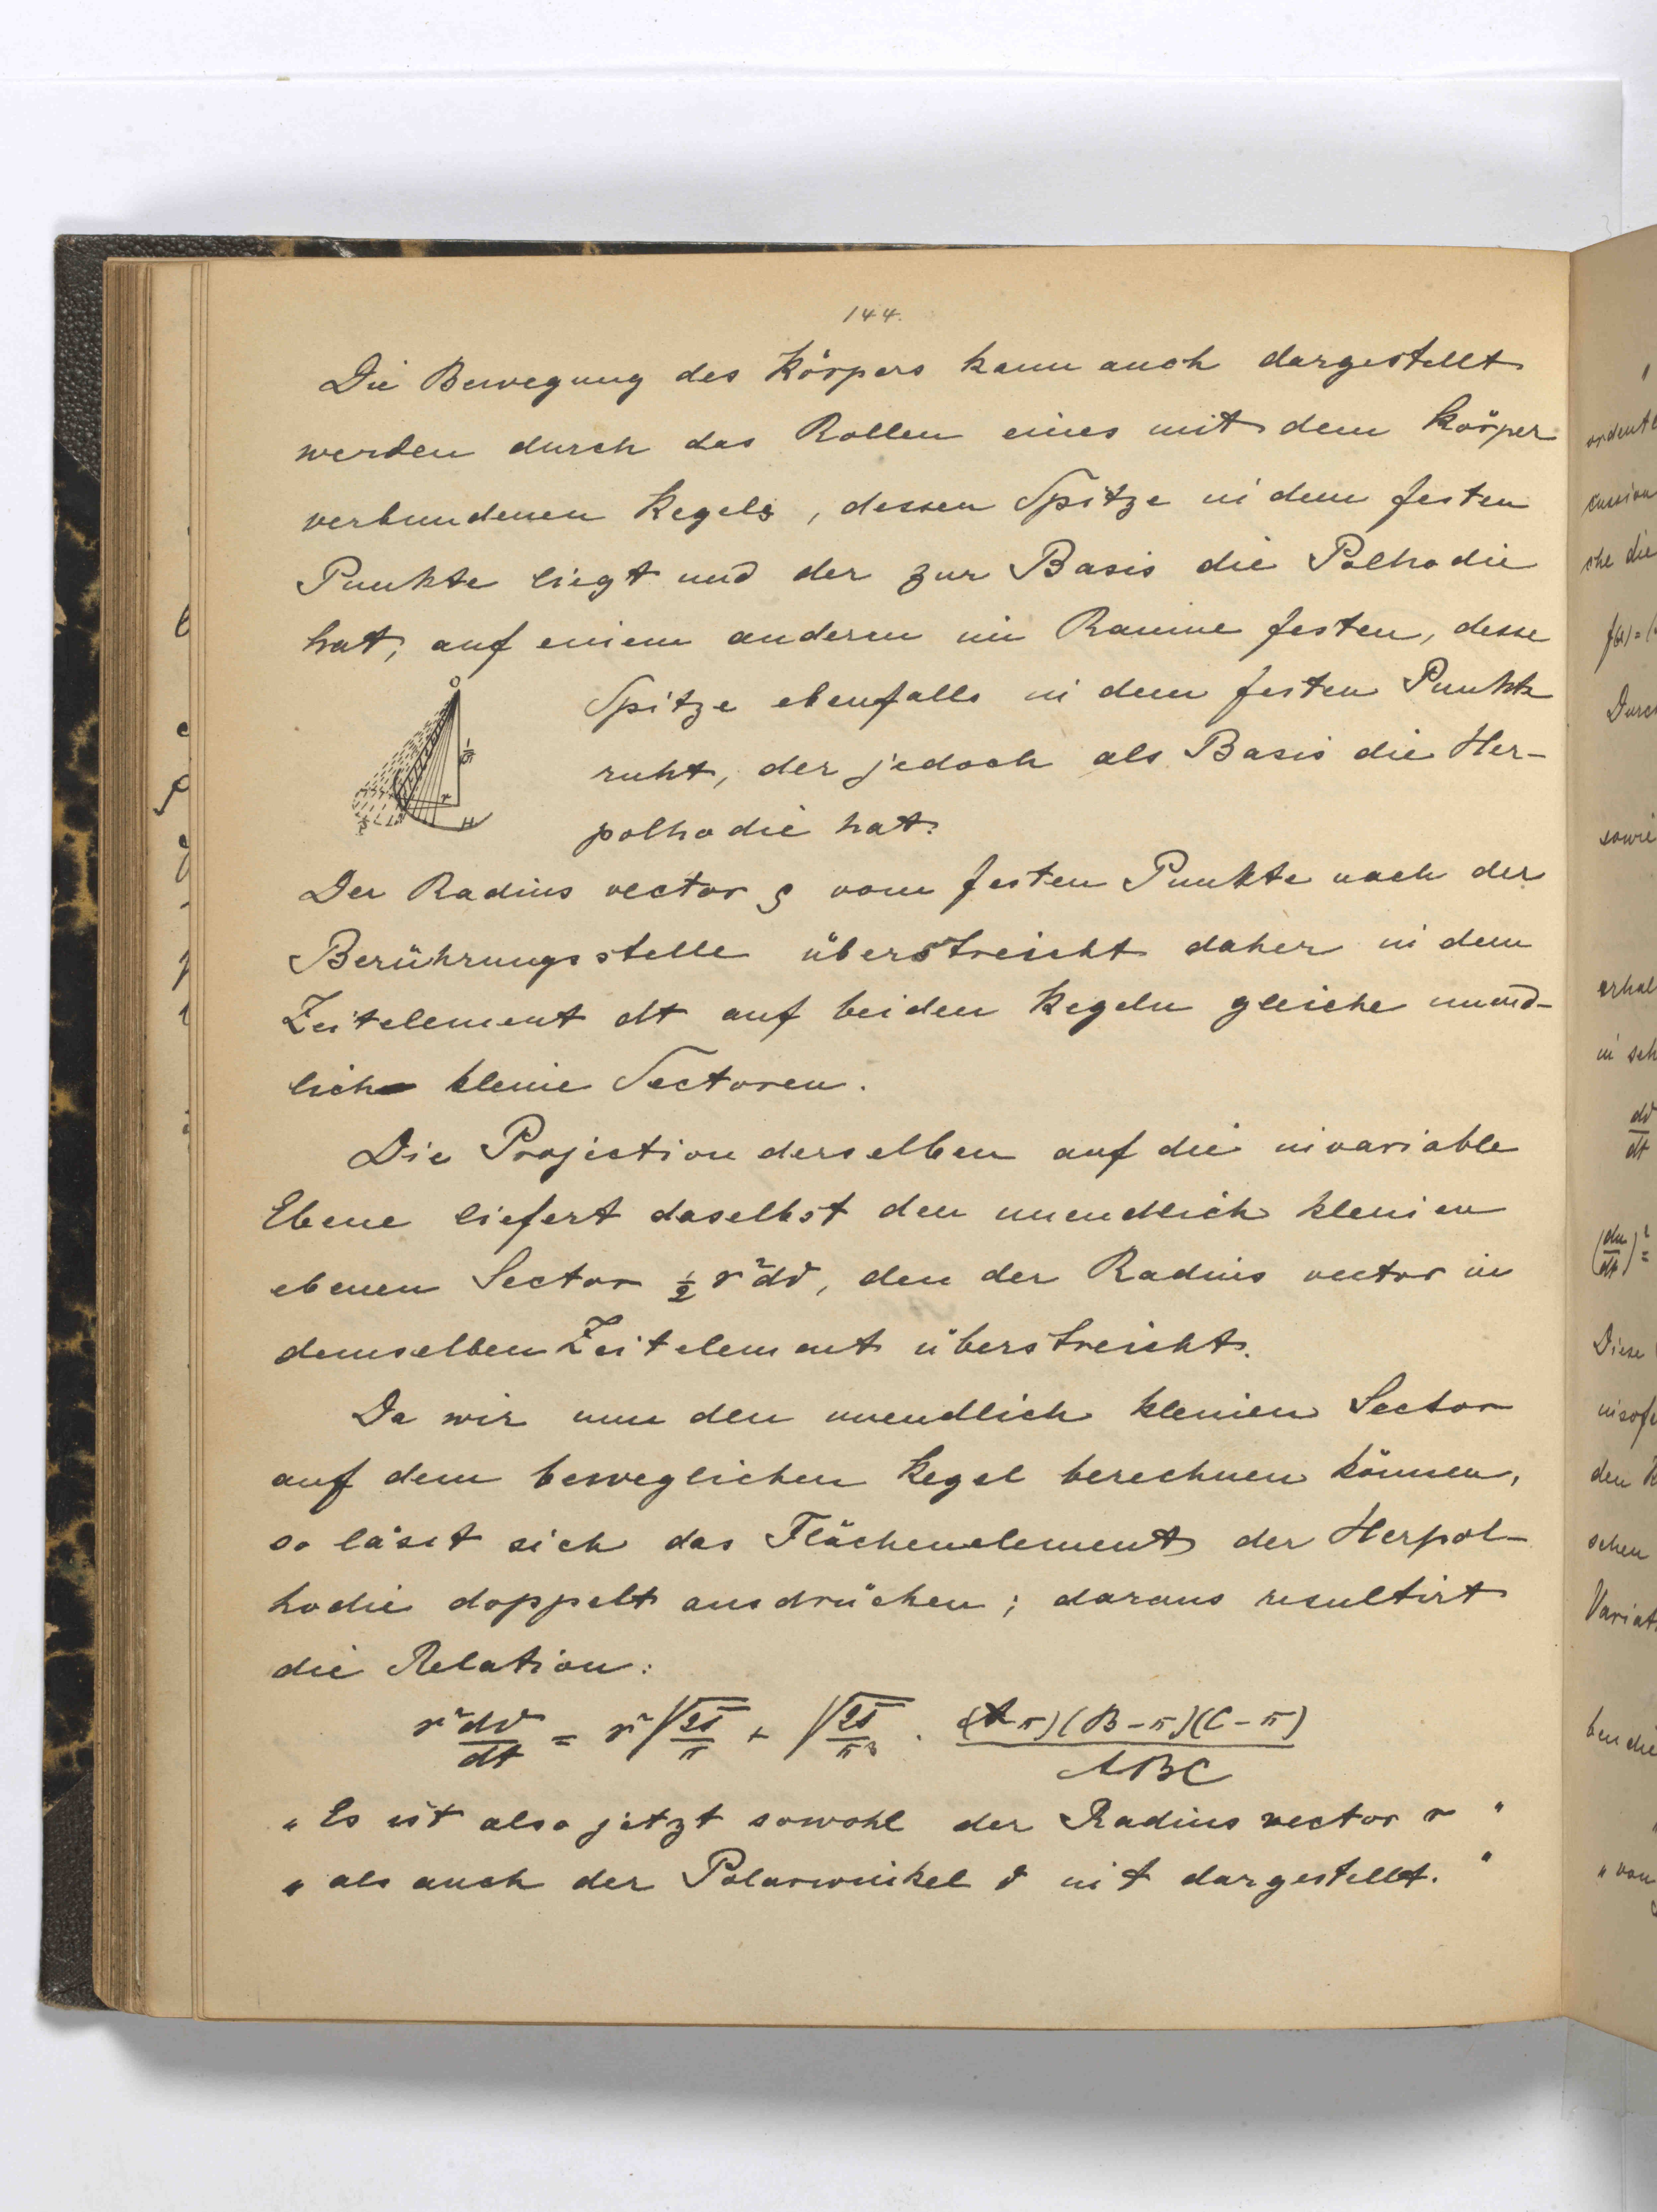 144.
Die Bewegung des Körpers kann auch dargestellt
werden durch das Rollen eines mit dem Körper
verbundenen Kegels, dessen Spitze in dem festen
Punkte liegt und der zur Basis die Polhodie
hat, auf einem anderen im Raume festen, desse
Spitze ebenfalls in dem festen Punkte
ruht, der jedoch als Basis die Her-
polhodie hat.
Der Radius vector ϱ vom festen Punkte nach der
Berührungsstelle überstreicht daher in dem
Zeitelement dt auf beiden Kegeln gleiche unend-
lich kleine Sectoren.
Die Projection derselben auf die invariable
Ebene liefert daselbst den unendlich kleinen
ebenen Sector ½ r²dϑ, den der Radius vector in
demselben Zeitelement überstreicht.
Da wir nun den unendlich kleinen Sector
auf dem beweglichen Kegel berechnen können,
so lässt sich das Flächenelement der Herpol-
hodie doppelt ausdrücken; daraus resultirt
die Relation:
r² dϑ/dt = r² √(2T/π) + √(2T/π³) · (A-π)(B-π)(C-π)/ABC
„Es ist also jetzt sowohl der Radius vector r "
„als auch der Polarwinkel ϑ in t dargestellt. "
ordente
cussion
che die
f(x) = (
Durc
sowie
erhal
in sch
dϑ/dt
(du/dt)² =
Diese
insofe
den K
schen
Variat
ben die
„ von